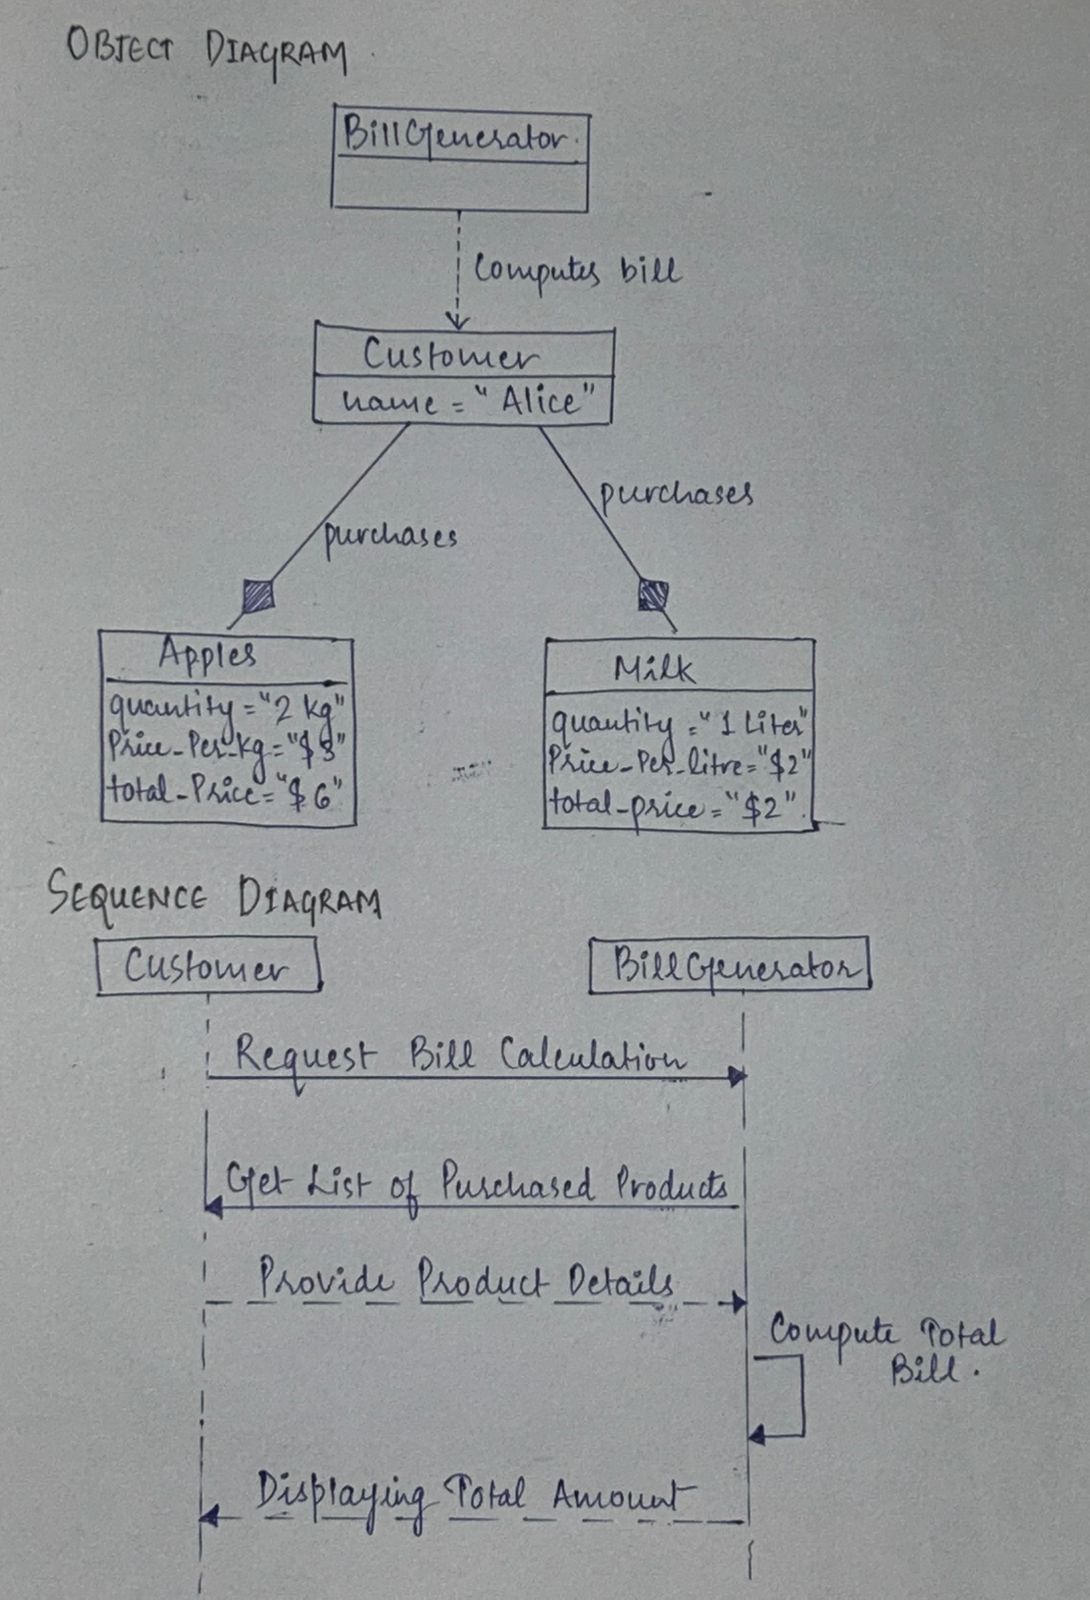 OBJECT DIAGRAM
BillGenerator
Computes bill
Customer
name = "Alice"
purchases
purchases
Apples
quantity = "2 kg"
Price_Per_kg = "$3"
total_Price = "$6"
Milk
quantity = "1 Liter"
Price_Per_litre = "$2"
total_price = "$2".
SEQUENCE DIAGRAM
Customer
BillGenerator
Request Bill Calculation
Get List of Purchased Products
Provide Product Details
Compute Total
Bill.
Displaying Total Amount